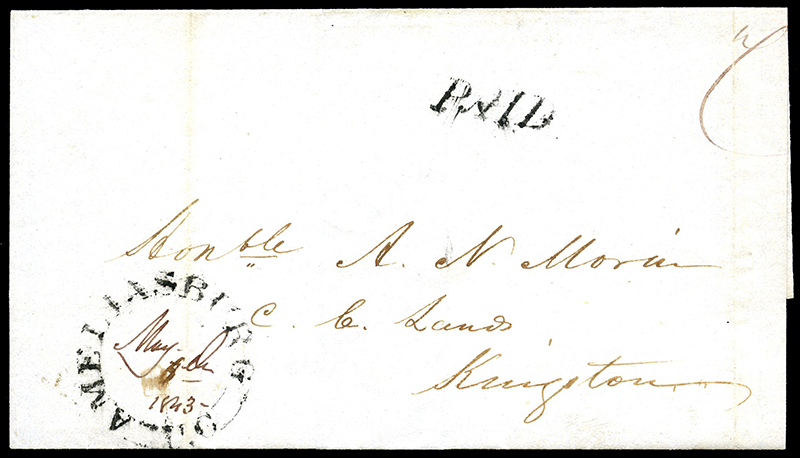 PAID
Honble A. N. Morin
C. C. Lands
Kingston
AMELIASBURG
May
1843